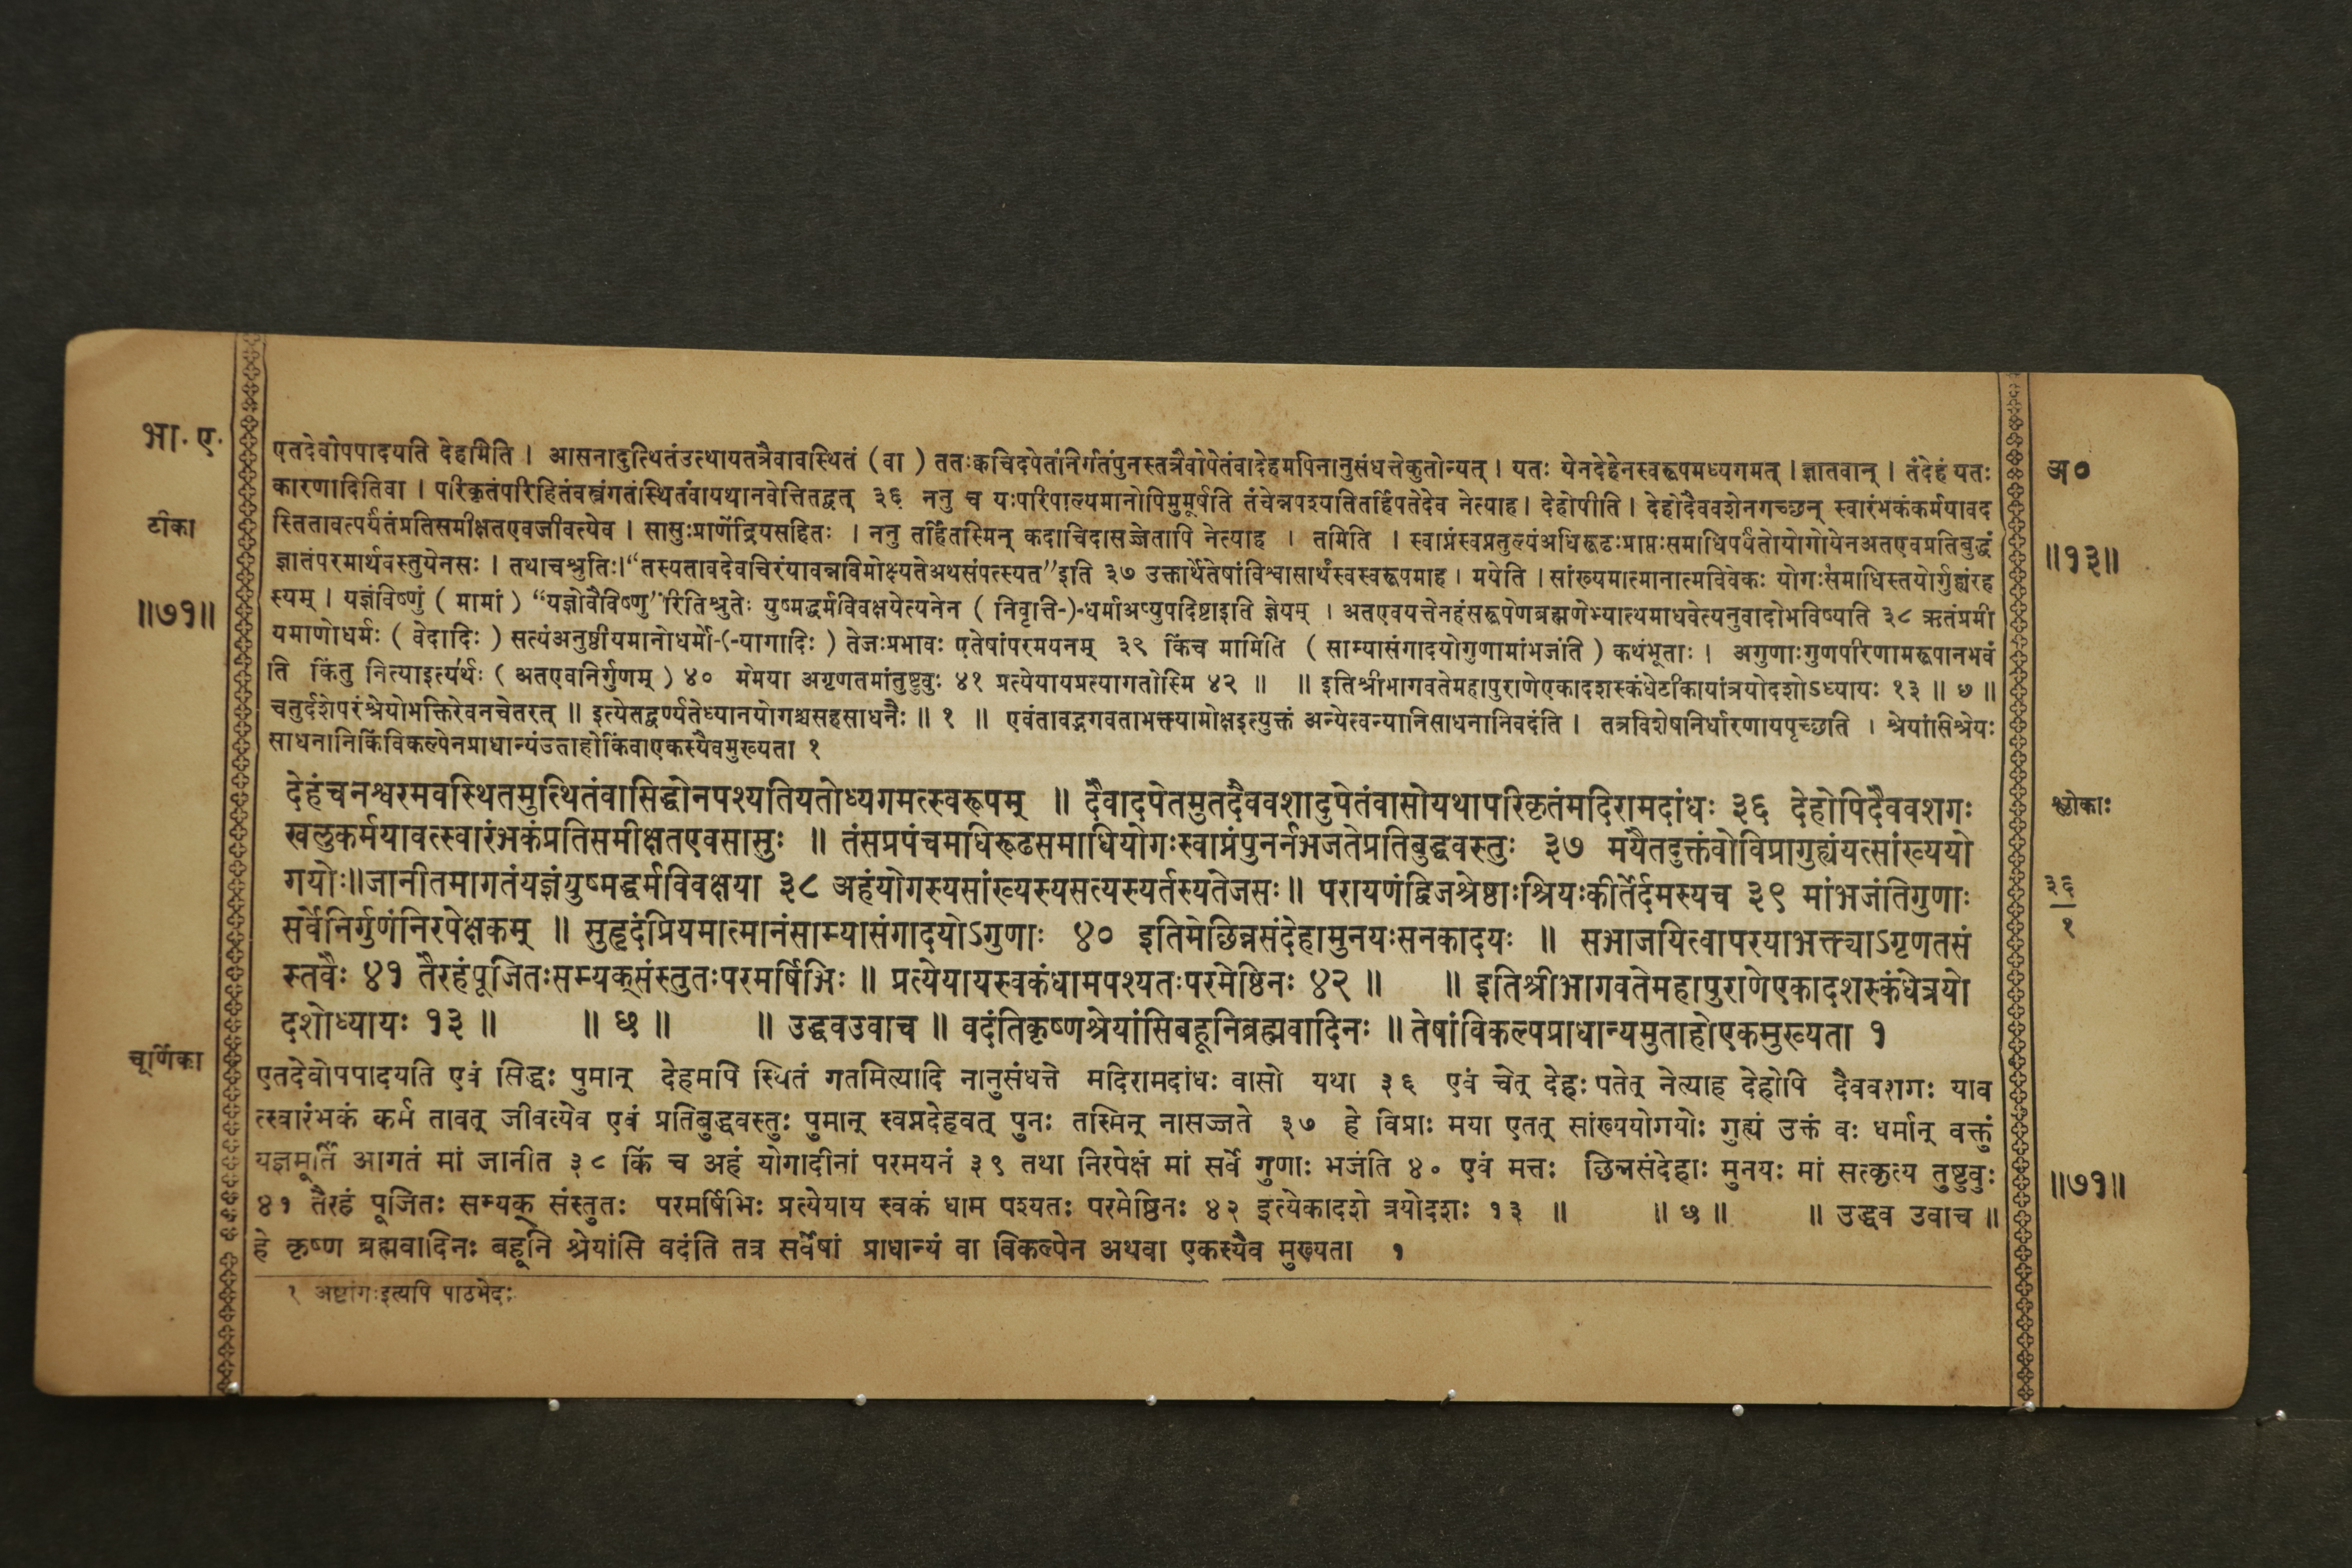 भा. ए.
टीका
॥७१॥
एतदेवोपपादयति देहमिति । आसनादुत्थितंउत्थायतत्रैवावस्थितं (वा) ततःक्वचिदपेतंनिर्गतंपुनस्तत्रैवोपेतंवादेहमपिनानुसंधत्तेकुतोन्यत् । यतः येनदेहेनस्वरूपमध्यगमत् । ज्ञातवान् । तंदेहं यतः
कारणादितिवा । परिकृतंपरिहितंवस्त्रंगतंस्थितंवायथानवेत्तितद्वत् ३६ ननु च यःपरिपाल्यमानोपिमुमूर्षति तंचेन्नपश्यतितर्हिपतेदेव नेत्याह । देहोपीति । देहोदैववशेनगच्छन् स्वारंभकंकर्मयावद
स्तितावत्पर्यंतंप्रतिसमीक्षतएवजीवत्येव । सासुःप्राणेंद्रियसहितः । ननु तर्हितस्मिन् कदाचिदासज्जेतापि नेत्याह । तमिति । स्वाप्नंस्वप्नतुल्यंअधिरूढःप्राप्तःसमाधिपर्यंतोयोगोयेनअतएवप्रतिबुद्धं
ज्ञातंपरमार्थवस्तुयेनसः । तथाचश्रुतिः।“तस्यतावदेवचिरंयावन्नविमोक्ष्यतेअथसंपत्स्यत”इति ३७ उक्तार्थेतेषांविश्वासार्थंस्वस्वरूपमाह । मयेति । सांख्यमात्मानात्मविवेकः योगःसमाधिस्तयोर्गुह्यंरह
स्यम् । यज्ञंविष्णुं ( मामां ) “यज्ञोवैविष्णु”रितिश्रुतेः युष्मद्धर्मविवक्षयेत्यनेन ( निवृत्ति-)-धर्माअप्युपदिष्टाइति ज्ञेयम् । अतएवयत्तेनहंसरूपेणब्रह्मणेभ्यात्यमाधवेत्यनुवादोभविष्यति ३८ ऋतंप्रमी
यमाणोधर्मः ( वेदादिः ) सत्यंअनुष्ठीयमानोधर्मो-(-यागादिः ) तेजःप्रभावः एतेषांपरमयनम् ३९ किंच मामिति ( साम्यासंगादयोगुणामांभजंति ) कथंभूताः । अगुणाःगुणपरिणामरूपानभवं
ति किंतु नित्याइत्यर्थः ( अतएवनिर्गुणम् ) ४० मेमया अगृणतमांतुष्टुवुः ४१ प्रत्येयायप्रत्यागतोस्मि ४२ ॥ ॥ इतिश्रीभागवतेमहापुराणेएकादशस्कंधेटीकायांत्रयोदशोऽध्यायः १३ ॥ छ ॥
चतुर्दशेपरंश्रेयोभक्तिरेवनचेतरत् ॥ इत्येतद्वर्ण्यतेध्यानयोगश्चसहसाधनैः ॥ १ ॥ एवंतावद्भगवताभक्त्यामोक्षइत्युक्तं अन्येत्वन्यानिसाधनानिवदंति । तत्रविशेषनिर्धारणायपृच्छति । श्रेयांसिश्रेयः
साधनानिकिंविकल्पेनप्राधान्यंउताहोकिंवाएकस्यैवमुख्यता १
देहंचनश्वरमवस्थितमुत्थितंवासिद्धोनपश्यतियतोध्यगमत्स्वरूपम् ॥ दैवादपेतमुतदैववशादुपेतंवासोयथापरिकृतंमदिरामदांधः ३६ देहोपिदैववशगः
खलुकर्मयावत्स्वारंभकंप्रतिसमीक्षतएवसासुः ॥ तंसप्रपंचमधिरूढसमाधियोगःस्वाप्नंपुनर्नभजतेप्रतिबुद्धवस्तुः ३७ मयैतदुक्तंवोविप्रागुह्यंयत्सांख्ययो
गयोः॥जानीतमागतंयज्ञंयुष्मद्धर्मविवक्षया ३८ अहंयोगस्यसांख्यस्यसत्यस्यर्तस्यतेजसः॥ परायणंद्विजश्रेष्ठाःश्रियःकीर्तेर्दमस्यच ३९ मांभजंतिगुणाः
सर्वेनिर्गुणंनिरपेक्षकम् ॥ सुहृदंप्रियमात्मानंसाम्यासंगादयोऽगुणाः ४० इतिमेछिन्नसंदेहामुनयःसनकादयः ॥ सभाजयित्वापरयाभक्त्याऽगृणतसं
स्तवैः ४१ तैरहंपूजितःसम्यक्संस्तुतःपरमर्षिभिः ॥ प्रत्येयायस्वकंधामपश्यतःपरमेष्ठिनः ४२ ॥ ॥ इतिश्रीभागवतेमहापुराणेएकादशस्कंधेत्रयो
दशोध्यायः १३ ॥ ॥ छ ॥ ॥ उद्धवउवाच ॥ वदंतिकृष्णश्रेयांसिबहूनिब्रह्मवादिनः ॥ तेषांविकल्पप्राधान्यमुताहोएकमुख्यता १
चूर्णिका
एतदेवोपपादयति एवं सिद्धः पुमान् देहमपि स्थितं गतमित्यादि नानुसंधत्ते मदिरामदांधः वासो यथा ३६ एवं चेत् देहः पतेत् नेत्याह देहोपि दैववशगः याव
त्स्वारंभकं कर्म तावत् जीवत्येव एवं प्रतिबुद्धवस्तुः पुमान् स्वप्नदेहवत् पुनः तस्मिन् नासज्जते ३७ हे विप्राः मया एतत् सांख्ययोगयोः गुह्यं उक्तं वः धर्मान् वक्तुं
यज्ञमूर्तिं आगतं मां जानीत ३८ किं च अहं योगादीनां परमयनं ३९ तथा निरपेक्षं मां सर्वे गुणाः भजंति ४० एवं मत्तः छिन्नसंदेहाः मुनयः मां सत्कृत्य तुष्टुवुः
४१ तैरहं पूजितः सम्यक् संस्तुतः परमर्षिभिः प्रत्येयाय स्वकं धाम पश्यतः परमेष्ठिनः ४२ इत्येकादशे त्रयोदशः १३ ॥ ॥ छ ॥ ॥ उद्धव उवाच ॥
हे कृष्ण ब्रह्मवादिनः बहूनि श्रेयांसि वदंति तत्र सर्वेषां प्राधान्यं वा विकल्पेन अथवा एकस्यैव मुख्यता १
१ अष्टांगःइत्यपि पाठभेदः
अ०
॥१३॥
श्लोकाः
३६
१
॥७१॥